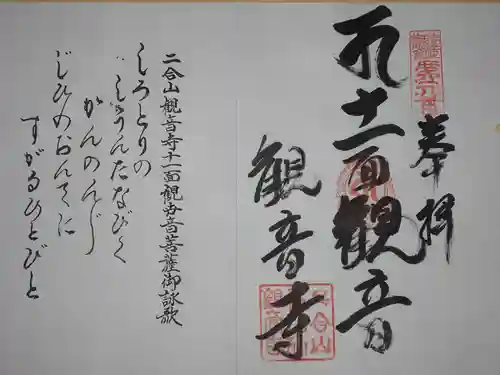 奉拝
十一面観音
観音寺
二合山観音寺十一面観世音菩薩御詠歌
しろとりの
たなびく
かんのんじ
じひのおんてに
すがるひとびと